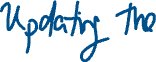 Updating the